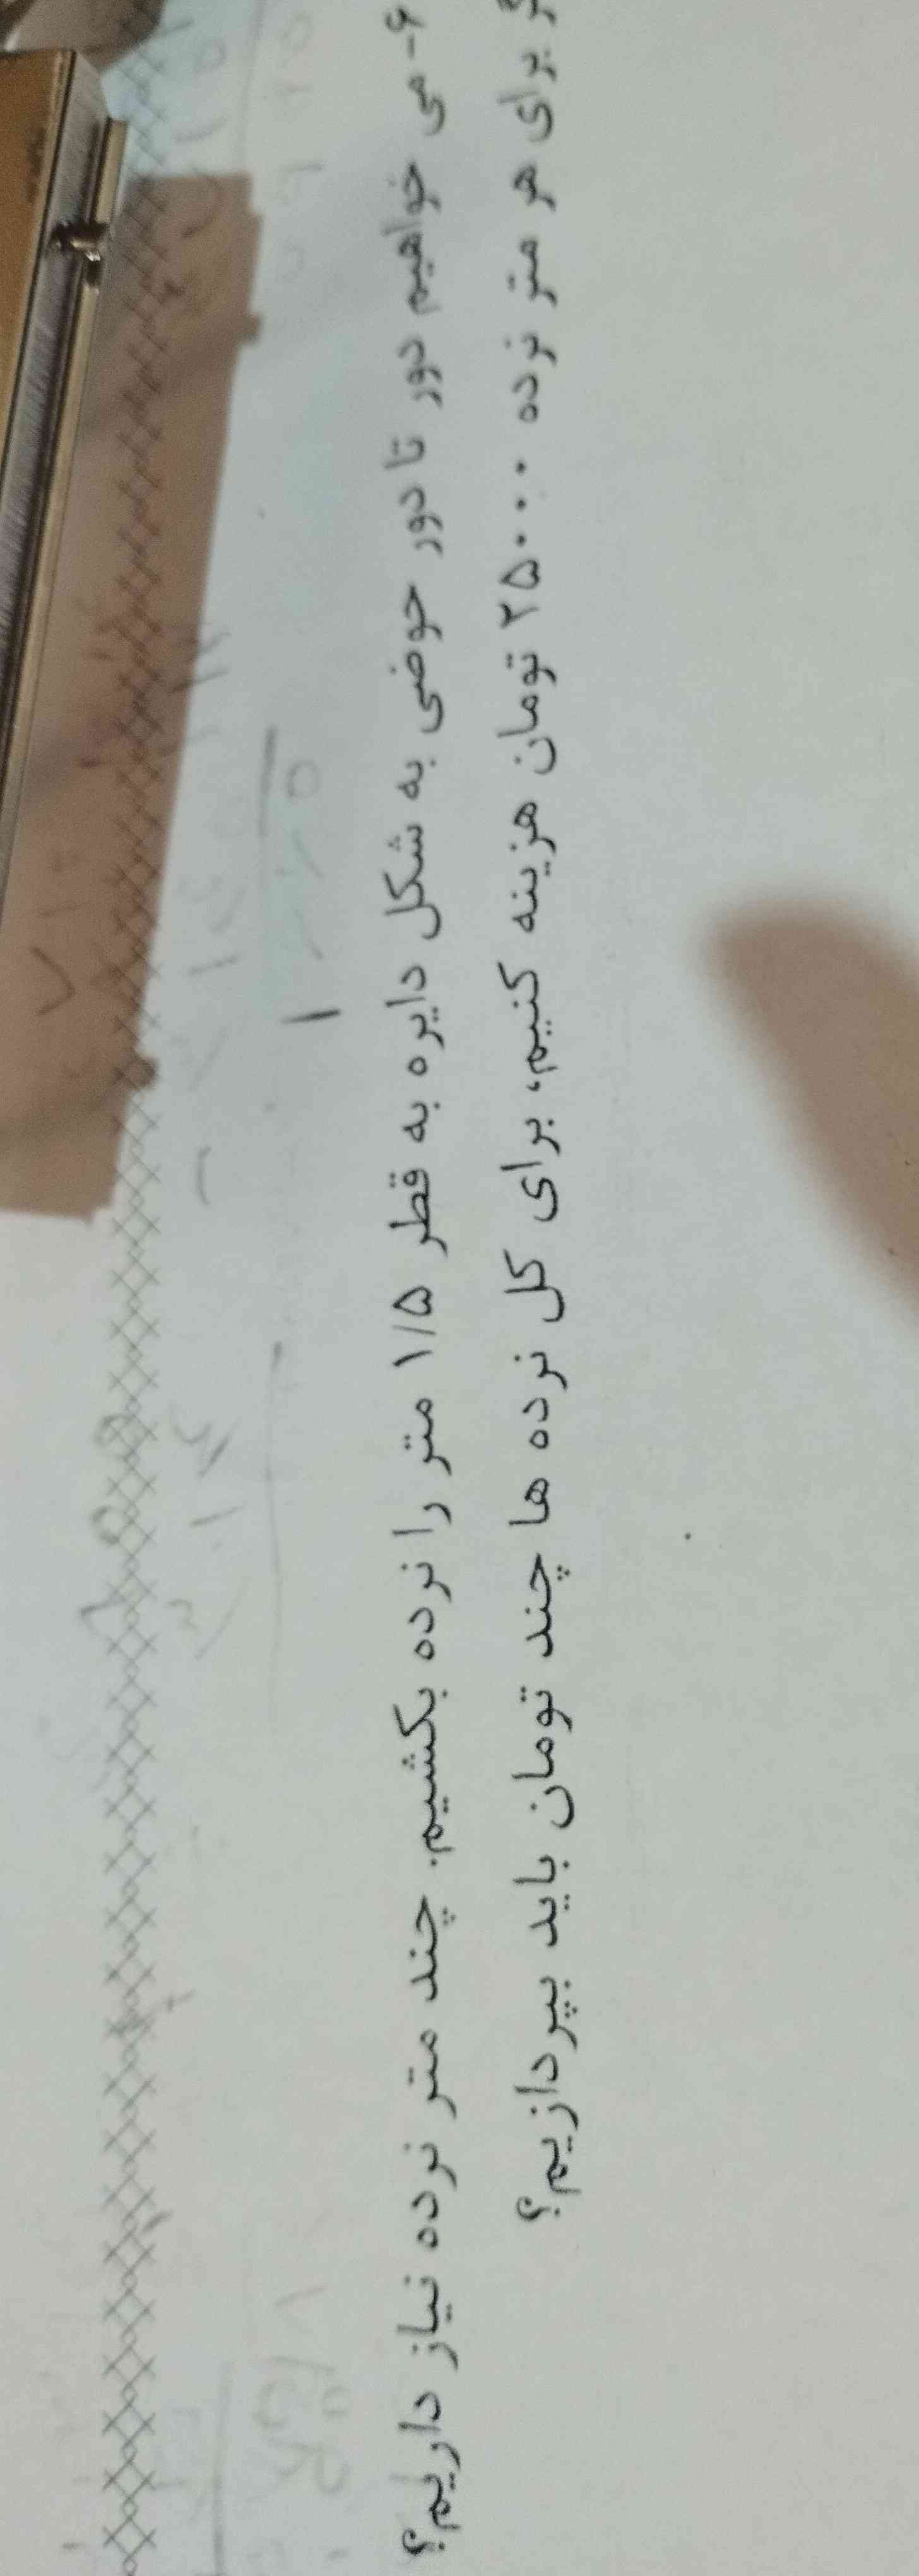 ۶- می خواهیم دور تا دور حوضی به شکل دایره به قطر ۱/۵ متر را نرده بکشیم. چند متر نرده نیاز داریم؟
برای هر متر نرده ۲۵۰۰۰ تومان هزینه کنیم، برای کل نرده ها چند تومان باید بپردازیم؟